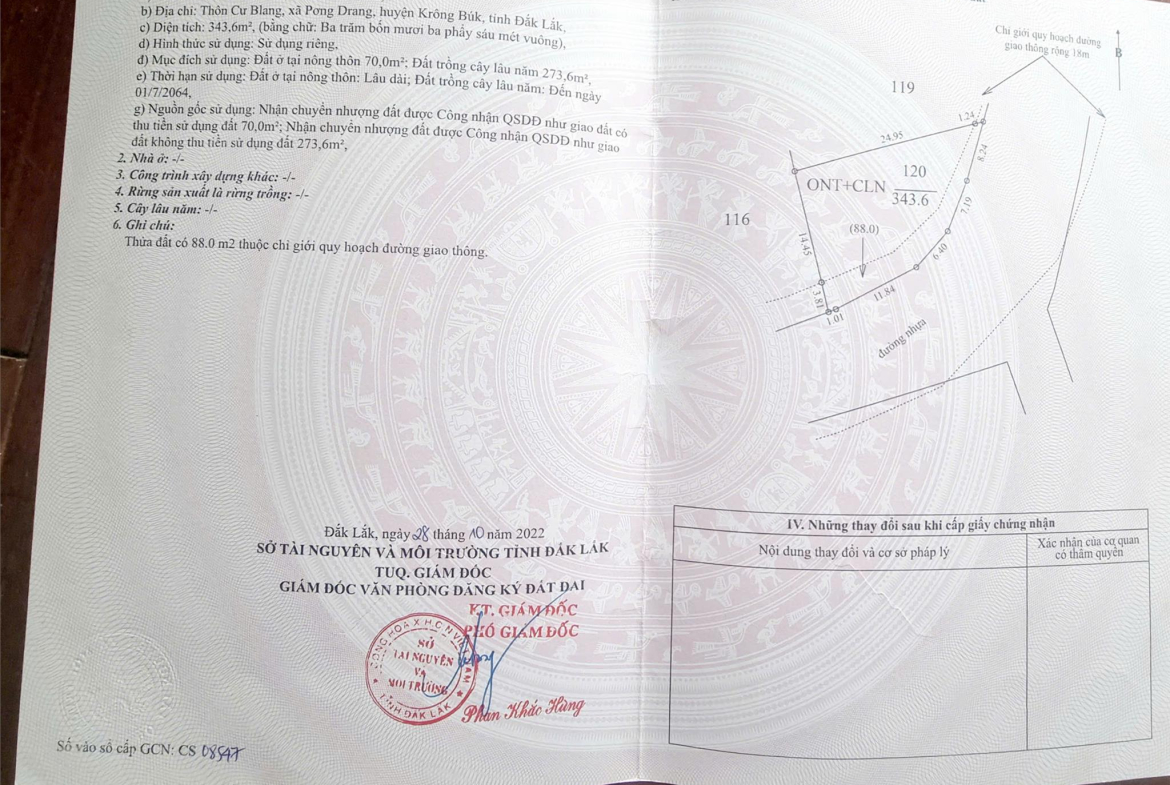 b) Địa chỉ: Thôn Cư Blang, xã Pơng Drang, huyện Krông Búk, tỉnh Đắk Lắk,
c) Diện tích: 343,6m², (bằng chữ: Ba trăm bốn mươi ba phẩy sáu mét vuông),
d) Hình thức sử dụng: Sử dụng riêng,
đ) Mục đích sử dụng: Đất ở tại nông thôn 70,0m²; Đất trồng cây lâu năm 273,6m²,
e) Thời hạn sử dụng: Đất ở tại nông thôn: Lâu dài; Đất trồng cây lâu năm: Đến ngày
01/7/2064,
g) Nguồn gốc sử dụng: Nhận chuyển nhượng đất được Công nhận QSDĐ như giao đất có
thu tiền sử dụng đất 70,0m²; Nhận chuyển nhượng đất được Công nhận QSDĐ như giao
đất không thu tiền sử dụng đất 273,6m²,
2. Nhà ở: -/-
3. Công trình xây dựng khác: -/-
4. Rừng sản xuất là rừng trồng: -/-
5. Cây lâu năm: -/-
6. Ghi chú:
Thửa đất có 88.0 m2 thuộc chỉ giới quy hoạch đường giao thông.
Đắk Lắk, ngày 28 tháng 10 năm 2022
SỞ TÀI NGUYÊN VÀ MÔI TRƯỜNG TỈNH ĐẮK LẮK
TUQ. GIÁM ĐỐC
GIÁM ĐỐC VĂN PHÒNG ĐĂNG KÝ ĐẤT ĐAI
KT. GIÁM ĐỐC
PHÓ GIÁM ĐỐC
CỘNG HÒA X.H.C.N VIỆT NAM
SỞ
TÀI NGUYÊN
VÀ
MÔI TRƯỜNG
TỈNH ĐẮK LẮK
Phan Khắc Hùng
Số vào sổ cấp GCN: CS 08547
Chỉ giới quy hoạch đường
giao thông rộng 18m
B
119
1.24
24.95
8.24
120
ONT+CLN
343.6
7.19
116
(88.0)
14.45
6.40
3.81
11.84
1.01
đường nhựa
IV. Những thay đổi sau khi cấp giấy chứng nhận
Nội dung thay đổi và cơ sở pháp lý
Xác nhận của cơ quan
có thẩm quyền